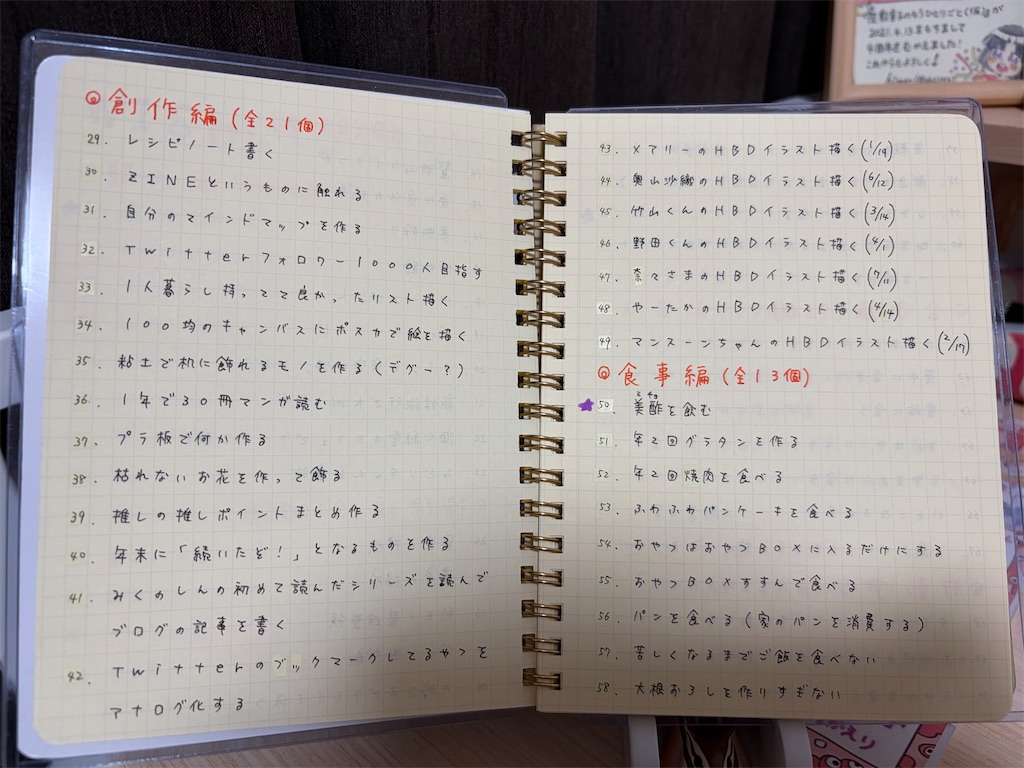 創作編(全21個)
29. レシピノート書く
30. ZINEというものに触れる
31. 自分のマインドマップを作る
32. Twitterフォロワー1000人目指す
33. 1人暮らし持ってて良かったリスト描く
34. 100均のキャンバスにポスカで絵を描く
35. 粘土で机に飾れるモノを作る(デグー?)
36. 1年で30冊マンガ読む
37. プラ板で何か作る
38. 枯れないお花を作って飾る
39. 推しの推しポイントまとめ作る
40. 年末に「続いたぞ!」となるものを作る
41. みくのしんの初めて読んだシリーズを読んで
ブログの記事を書く
42. Twitterのブックマークしてるやつを
アナログ化する
43. メアリーのHBDイラスト描く(1/19)
44. 奥山沙織のHBDイラスト描く(6/12)
45. 竹山くんのHBDイラスト描く(3/14)
46. 野田くんのHBDイラスト描く(4/1)
47. 奈々さまのHBDイラスト描く(7/11)
48. やーたかのHBDイラスト描く(4/14)
49. マンスーンちゃんのHBDイラスト描く(2/17)
食事編(全13個)
50. 美酢を飲む
51. 年2回グラタンを作る
52. 年2回焼肉を食べる
53. ふわふわパンケーキを食べる
54. おやつはおやつBOXに入るだけにする
55. おやつBOXすすんで食べる
56. パンを食べる(家のパンを消費する)
57. 苦しくなるまでご飯を食べない
58. 大根おろしを作りすぎない